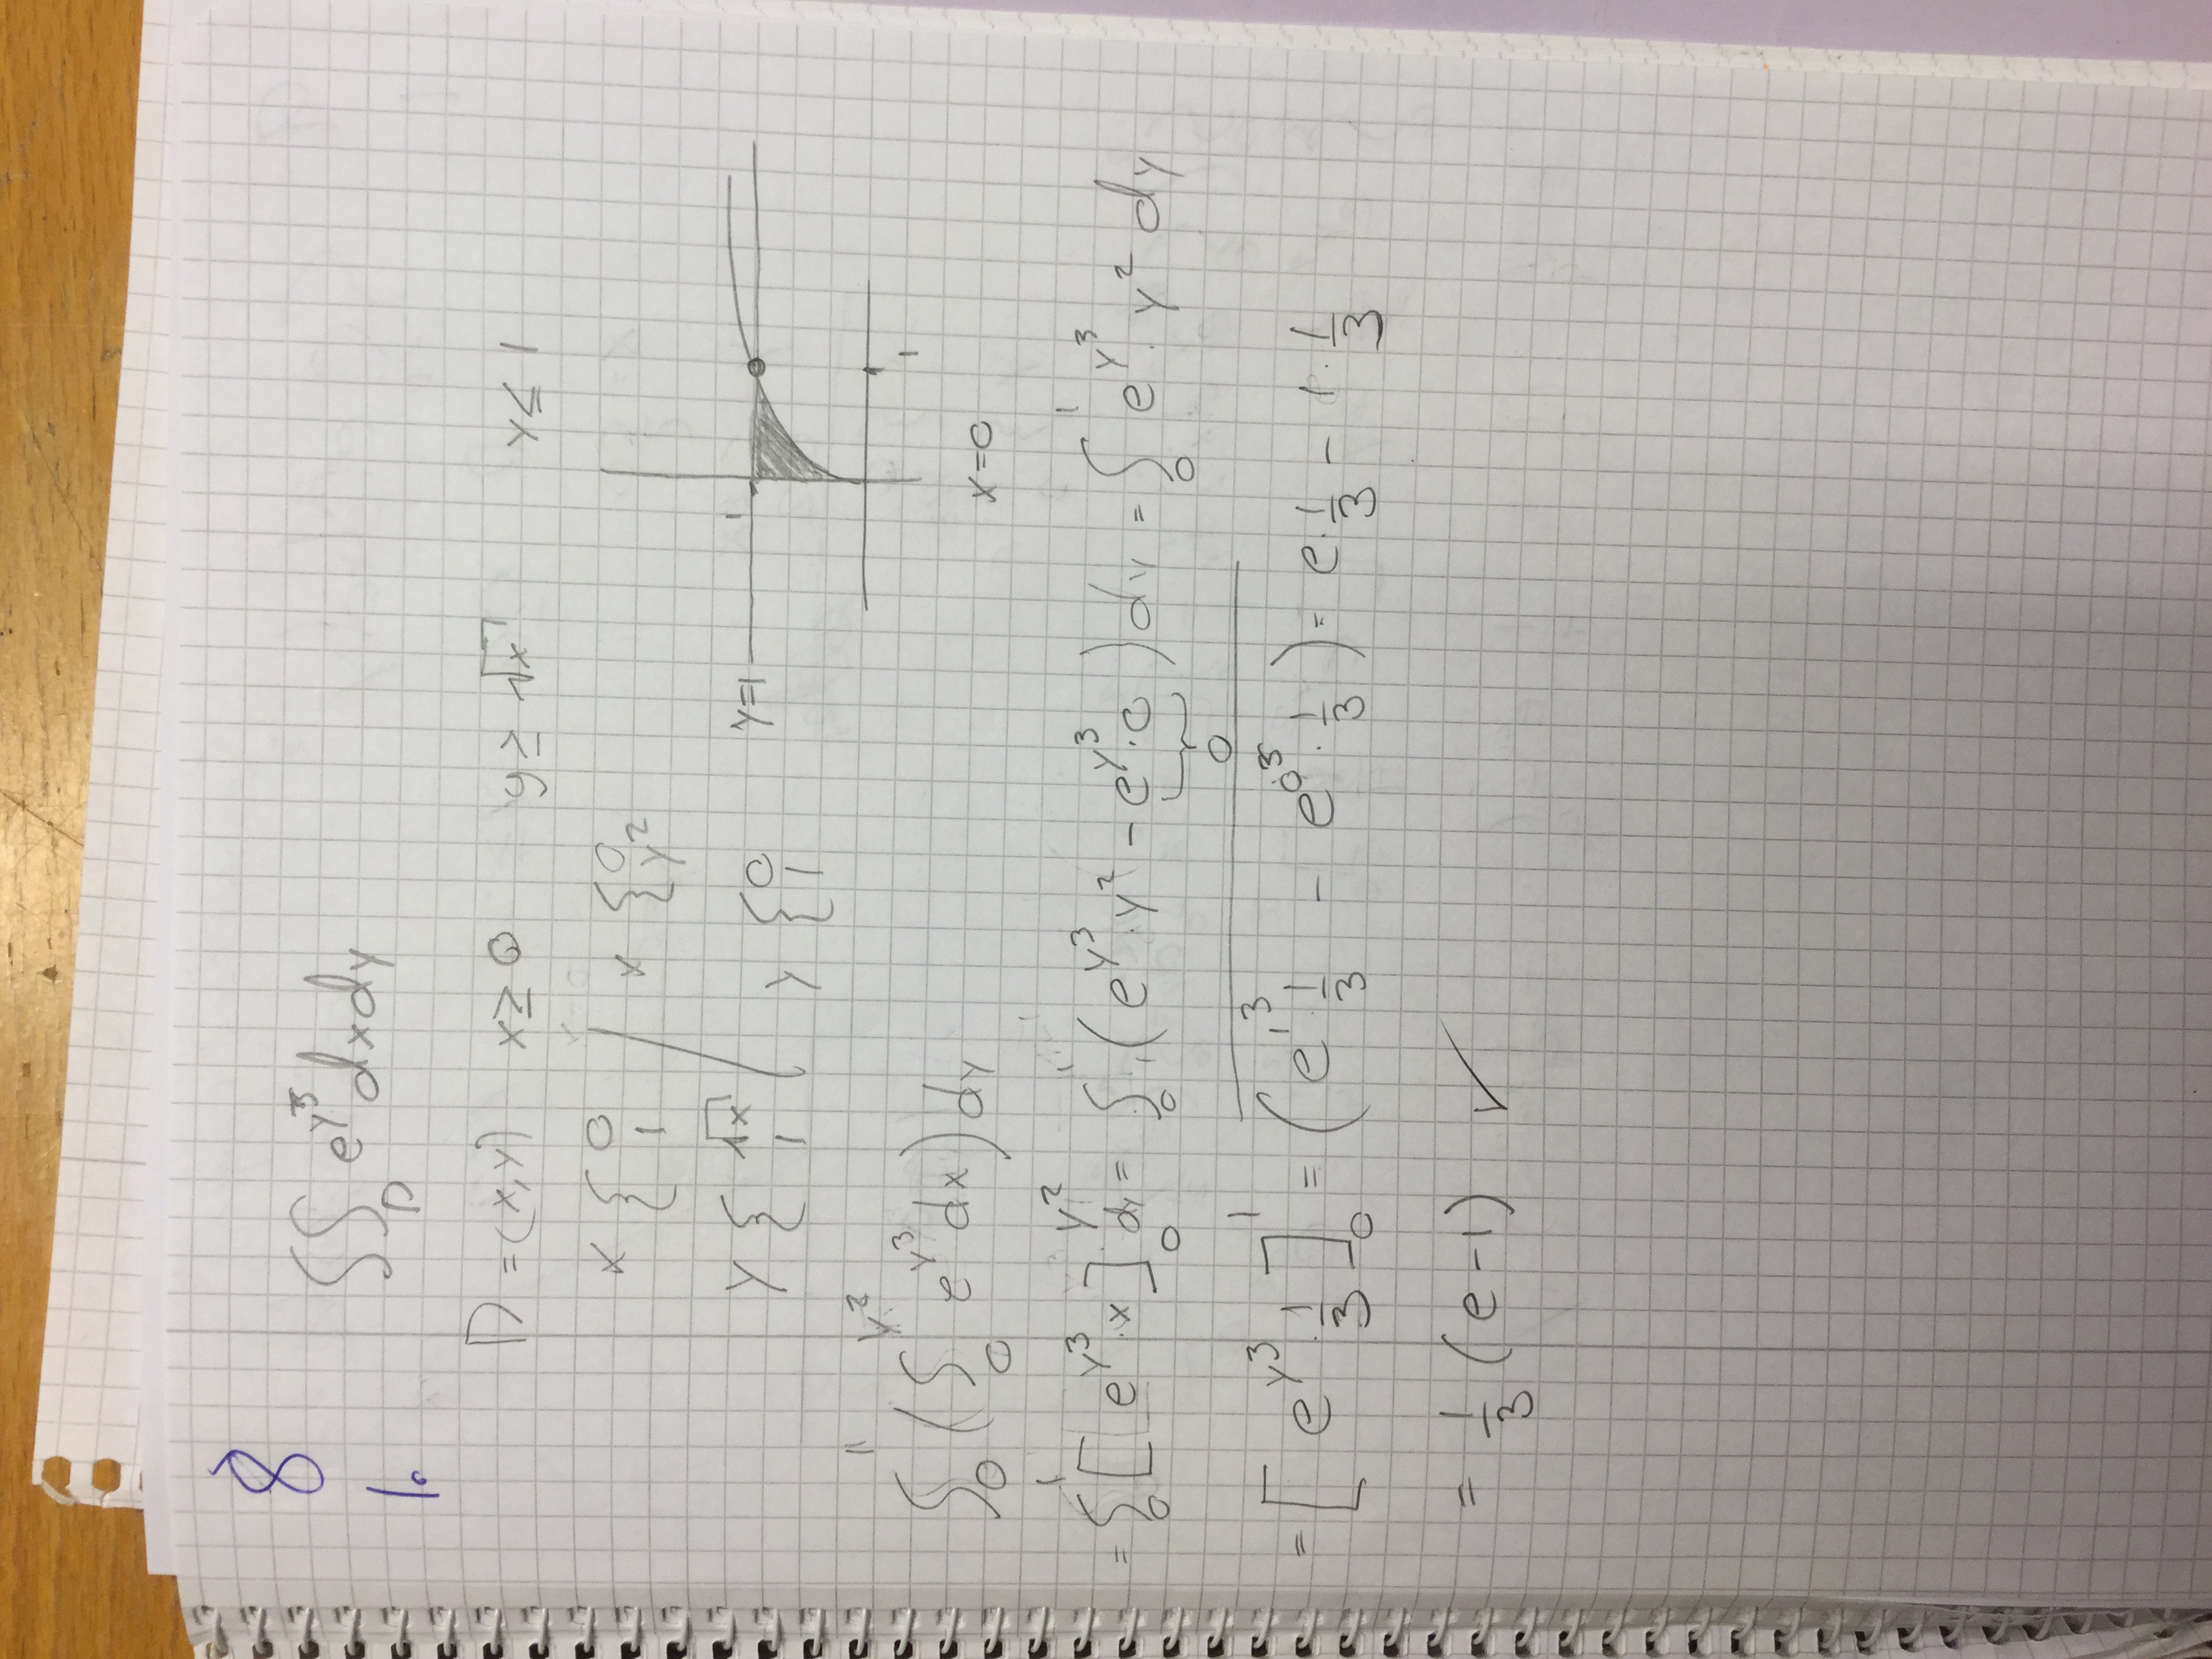 8
1.
∫∫_D e^{y^3} dxdy
D = (x,y) x ≥ 0 y ≥ √x y ≤ 1
x { 0 1 / x { 0 y^2
y { √x 1 / y { 0 1
y=1 1
1
x=0
∫_0^1 ( ∫_0^{y^2} e^{y^3} dx ) dy
= ∫_0^1 [ e^{y^3} · x ]_0^{y^2} dy = ∫_0^1 ( e^{y^3} · y^2 - e^{y^3} · 0 ) dy = ∫_0^1 e^{y^3} · y^2 dy
0
= [ e^{y^3} · 1/3 ]_0^1 = ( e^{1^3} · 1/3 - e^{0^3} · 1/3 ) = e · 1/3 - 1 · 1/3
= 1/3 (e-1) ✓